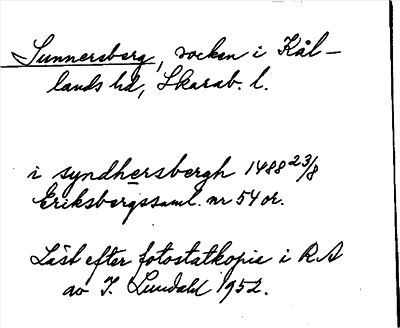 Sunnersberg, socken i Kål-
lands hd, Skarab. l.
i syndhersbergh 1488 23/8
Eriksbergssaml. nr 54 or.
Läst efter fotostatkopia i RA
av I. Lundahl 1952.